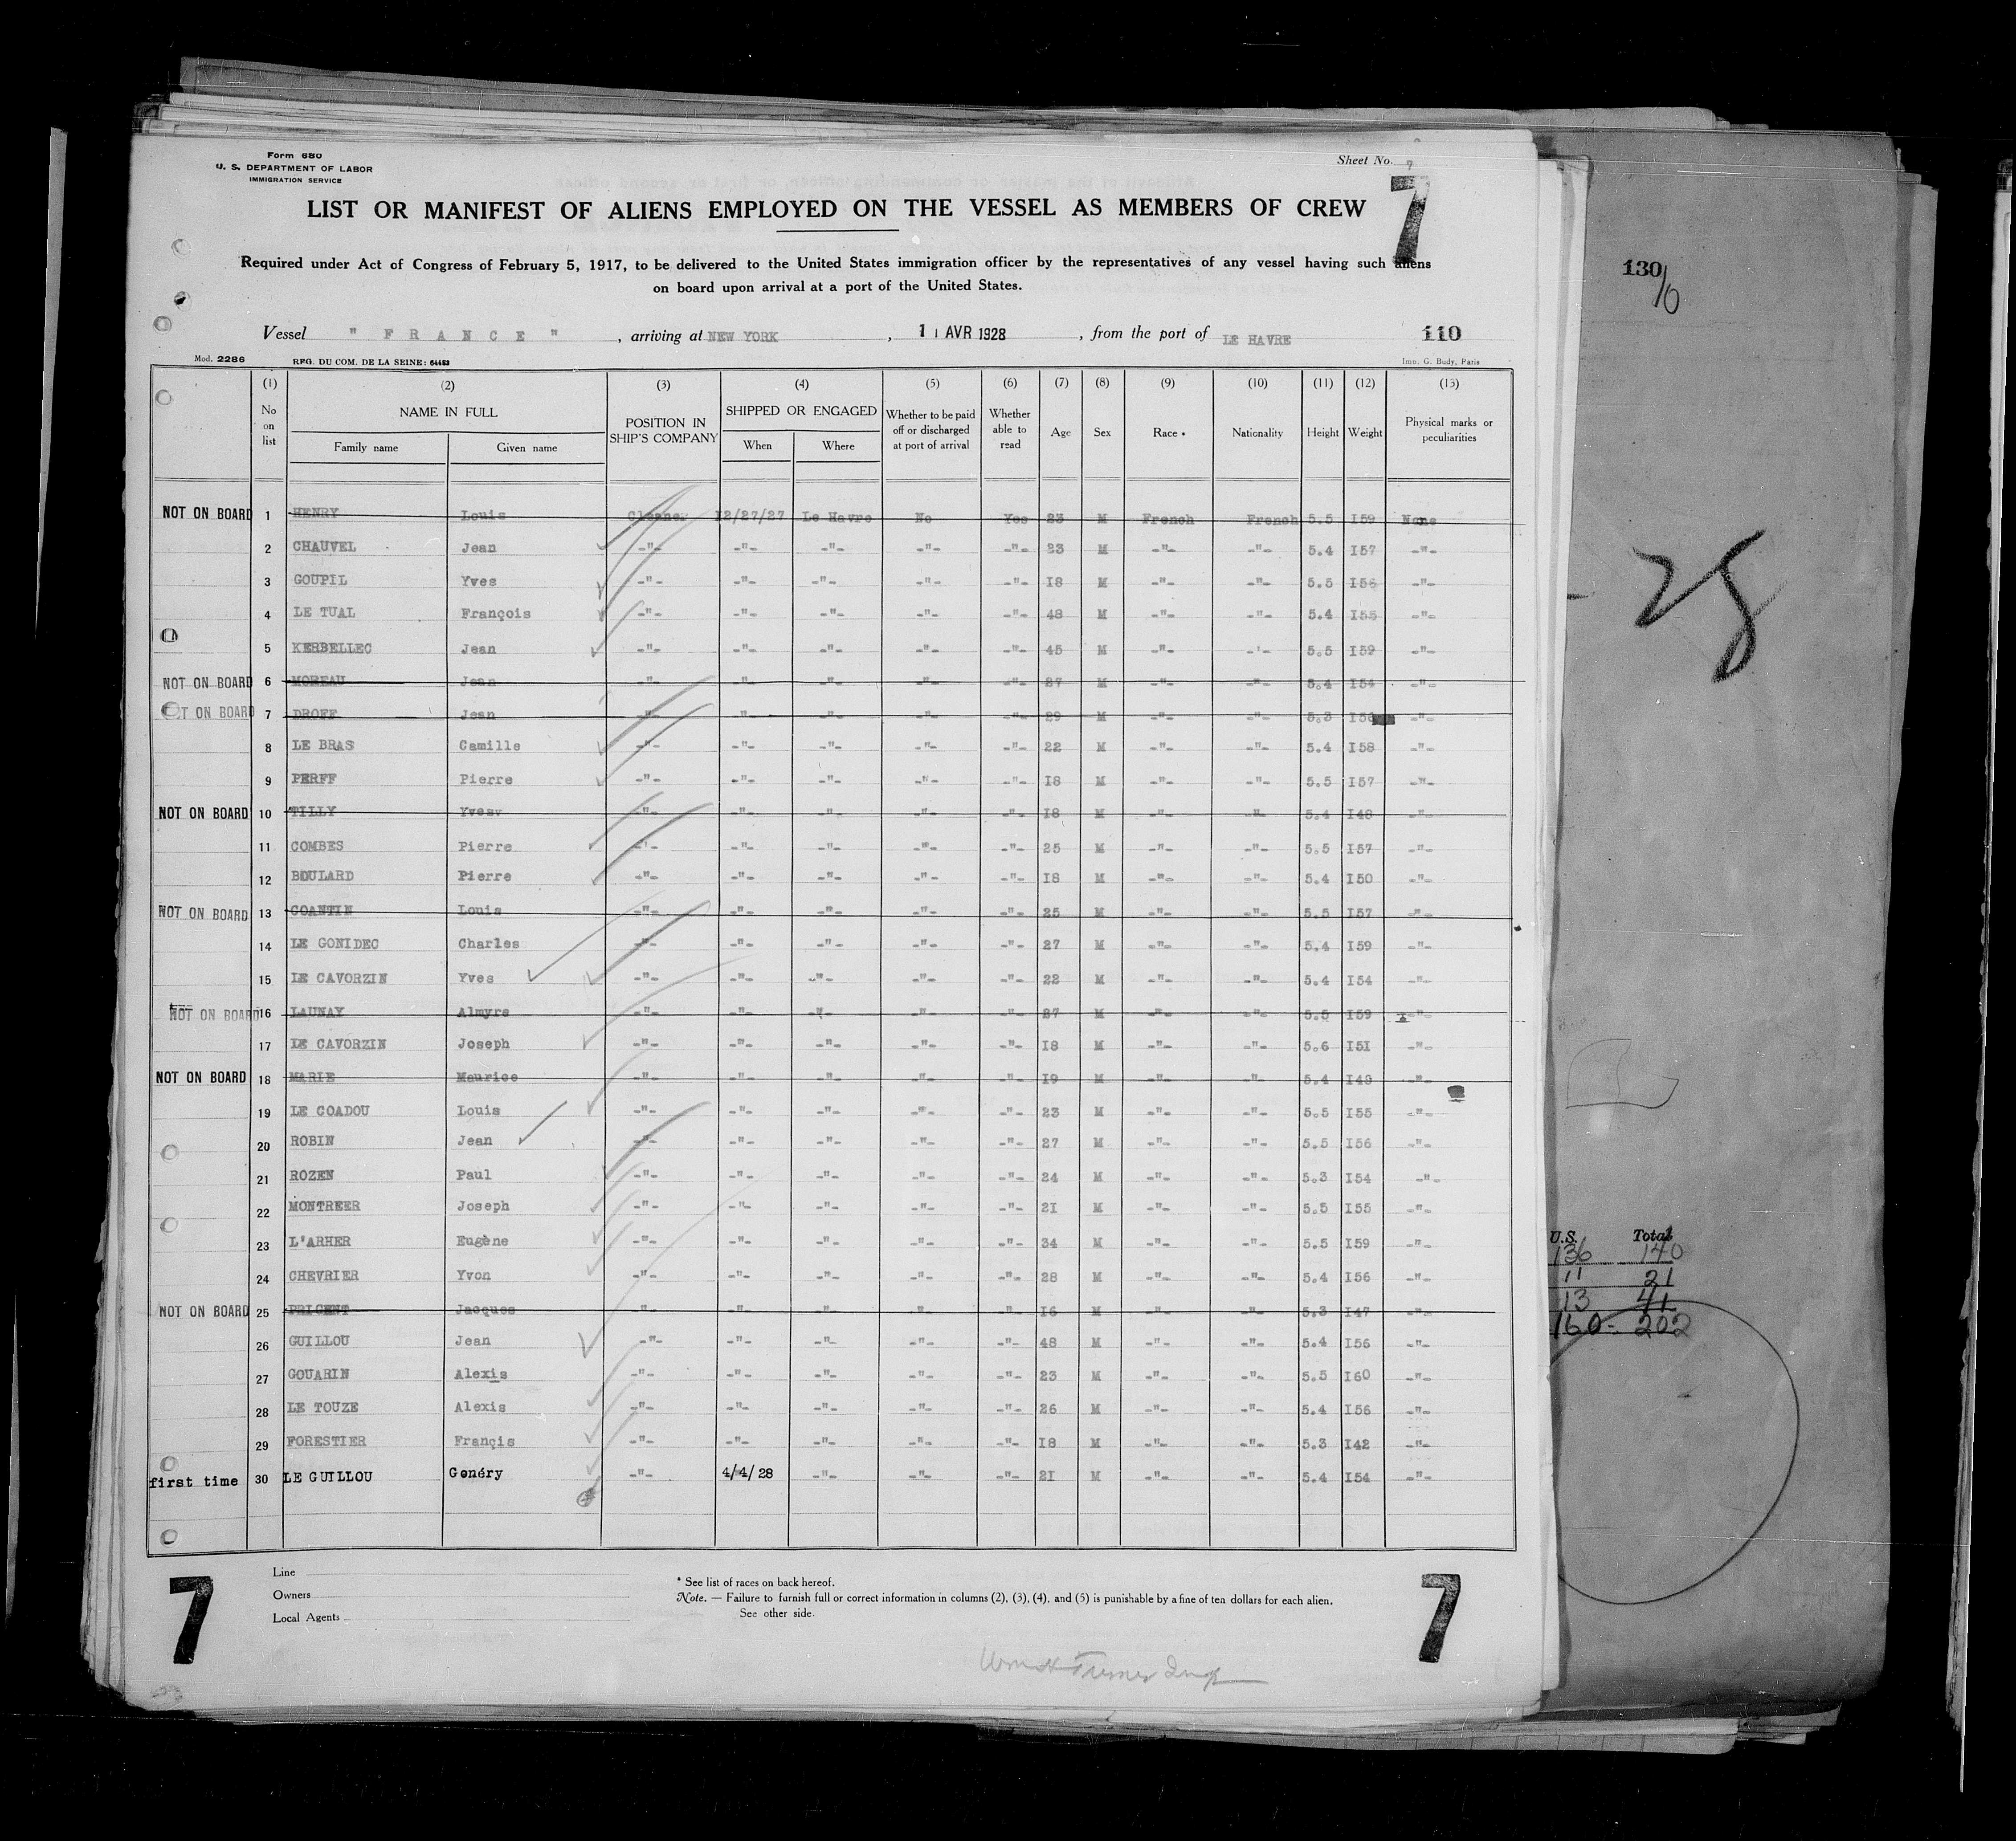 Form 680
U. S. DEPARTMENT OF LABOR
IMMIGRATION SERVICE
Sheet No. 7
7
LIST OR MANIFEST OF ALIENS EMPLOYED ON THE VESSEL AS MEMBERS OF CREW
Required under Act of Congress of February 5, 1917, to be delivered to the United States immigration officer by the representatives of any vessel having such aliens
on board upon arrival at a port of the United States.
Vessel " F R A N C E " , arriving at NEW YORK , 1 1 AVR 1928 , from the port of LE HAVRE 110
Mod. 2286 REG. DU COM. DE LA SEINE: 64483 Imp. G. Budy, Paris
(1) (2) (3) (4) (5) (6) (7) (8) (9) (10) (11) (12) (13)
No on list NAME IN FULL Family name Given name POSITION IN SHIP'S COMPANY SHIPPED OR ENGAGED When Where Whether to be paid off or discharged at port of arrival Whether able to read Age Sex Race * Nationality Height Weight Physical marks or peculiarities
NOT ON BOARD 1 HENRY Louis Cleaner 12/27/27 Le Havre No Yes 23 M French French 5.5 I59 None
2 CHAUVEL Jean -"- -"- -"- -"- -"- 23 M -"- -"- 5.4 I57 -"-
3 GOUPIL Yves -"- -"- -"- -"- -"- I8 M -"- -"- 5.5 I56 -"-
4 LE TUAL François -"- -"- -"- -"- -"- 48 M -"- -"- 5.4 I55 -"-
5 KERBELLEC Jean -"- -"- -"- -"- -"- 45 M -"- -"- 5.5 I59 -"-
NOT ON BOARD 6 MOREAU Jean -"- -"- -"- -"- -"- 27 M -"- -"- 5.4 I54 -"-
NOT ON BOARD 7 DROFF Jean -"- -"- -"- -"- -"- 29 M -"- -"- 5.3 -"-
8 LE BRAS Camille -"- -"- -"- -"- -"- 22 M -"- -"- 5.4 I58 -"-
9 PERFF Pierre -"- -"- -"- -"- -"- I8 M -"- -"- 5.5 I57 -"-
NOT ON BOARD 10 TILLY Yvesv -"- -"- -"- -"- -"- I8 M -"- -"- 5.4 I48 -"-
11 COMBES Pierre -"- -"- -"- -"- -"- 25 M -"- -"- 5.5 I57 -"-
12 BOULARD Pierre -"- -"- -"- -"- -"- I8 M -"- -"- 5.4 I50 -"-
NOT ON BOARD 13 COANTIN Louis -"- -"- -"- -"- -"- 25 M -"- -"- 5.5 I57 -"-
14 LE GONIDEC Charles -"- -"- -"- -"- -"- 27 M -"- -"- 5.4 I59 -"-
15 LE CAVORZIN Yves -"- -"- -"- -"- -"- 22 M -"- -"- 5.4 I54 -"-
NOT ON BOARD 16 LAUNAY Almyre -"- -"- -"- -"- -"- 27 M -"- -"- 5.5 I59 -"-
17 LE CAVORZIN Joseph -"- -"- -"- -"- -"- I8 M -"- -"- 5.6 I5I -"-
NOT ON BOARD 18 MARIE Maurice -"- -"- -"- -"- -"- I9 M -"- -"- 5.4 I48 -"-
19 LE COADOU Louis -"- -"- -"- -"- -"- 23 M -"- -"- 5.5 I55 -"-
20 ROBIN Jean -"- -"- -"- -"- -"- 27 M -"- -"- 5.5 I56 -"-
21 ROZEN Paul -"- -"- -"- -"- -"- 24 M -"- -"- 5.3 I54 -"-
22 MONTREER Joseph -"- -"- -"- -"- -"- 2I M -"- -"- 5.5 I55 -"-
23 L'ARHER Eugène -"- -"- -"- -"- -"- 34 M -"- -"- 5.5 I59 -"-
24 CHEVRIER Yvon -"- -"- -"- -"- -"- 28 M -"- -"- 5.4 I56 -"-
NOT ON BOARD 25 PRIGENT Jacques -"- -"- -"- -"- -"- I6 M -"- -"- 5.3 I47 -"-
26 GUILLOU Jean -"- -"- -"- -"- -"- 48 M -"- -"- 5.4 I56 -"-
27 GOUARIN Alexis -"- -"- -"- -"- -"- 23 M -"- -"- 5.5 I60 -"-
28 LE TOUZE Alexis -"- -"- -"- -"- -"- 26 M -"- -"- 5.4 I56 -"-
29 FORESTIER Françis -"- -"- -"- -"- -"- I8 M -"- -"- 5.3 I42 -"-
first time 30 LE GUILLOU Gonéry -"- 4/4/28 -"- -"- -"- 2I M -"- -"- 5.4 I54 -"-
Line
Owners
Local Agents
* See list of races on back hereof.
Note. — Failure to furnish full or correct information in columns (2), (3), (4), and (5) is punishable by a fine of ten dollars for each alien.
See other side.
7
7
Wm H Turner Insp
130/0
28
U.S. Total
136 140
11 21
13 41
160 - 202